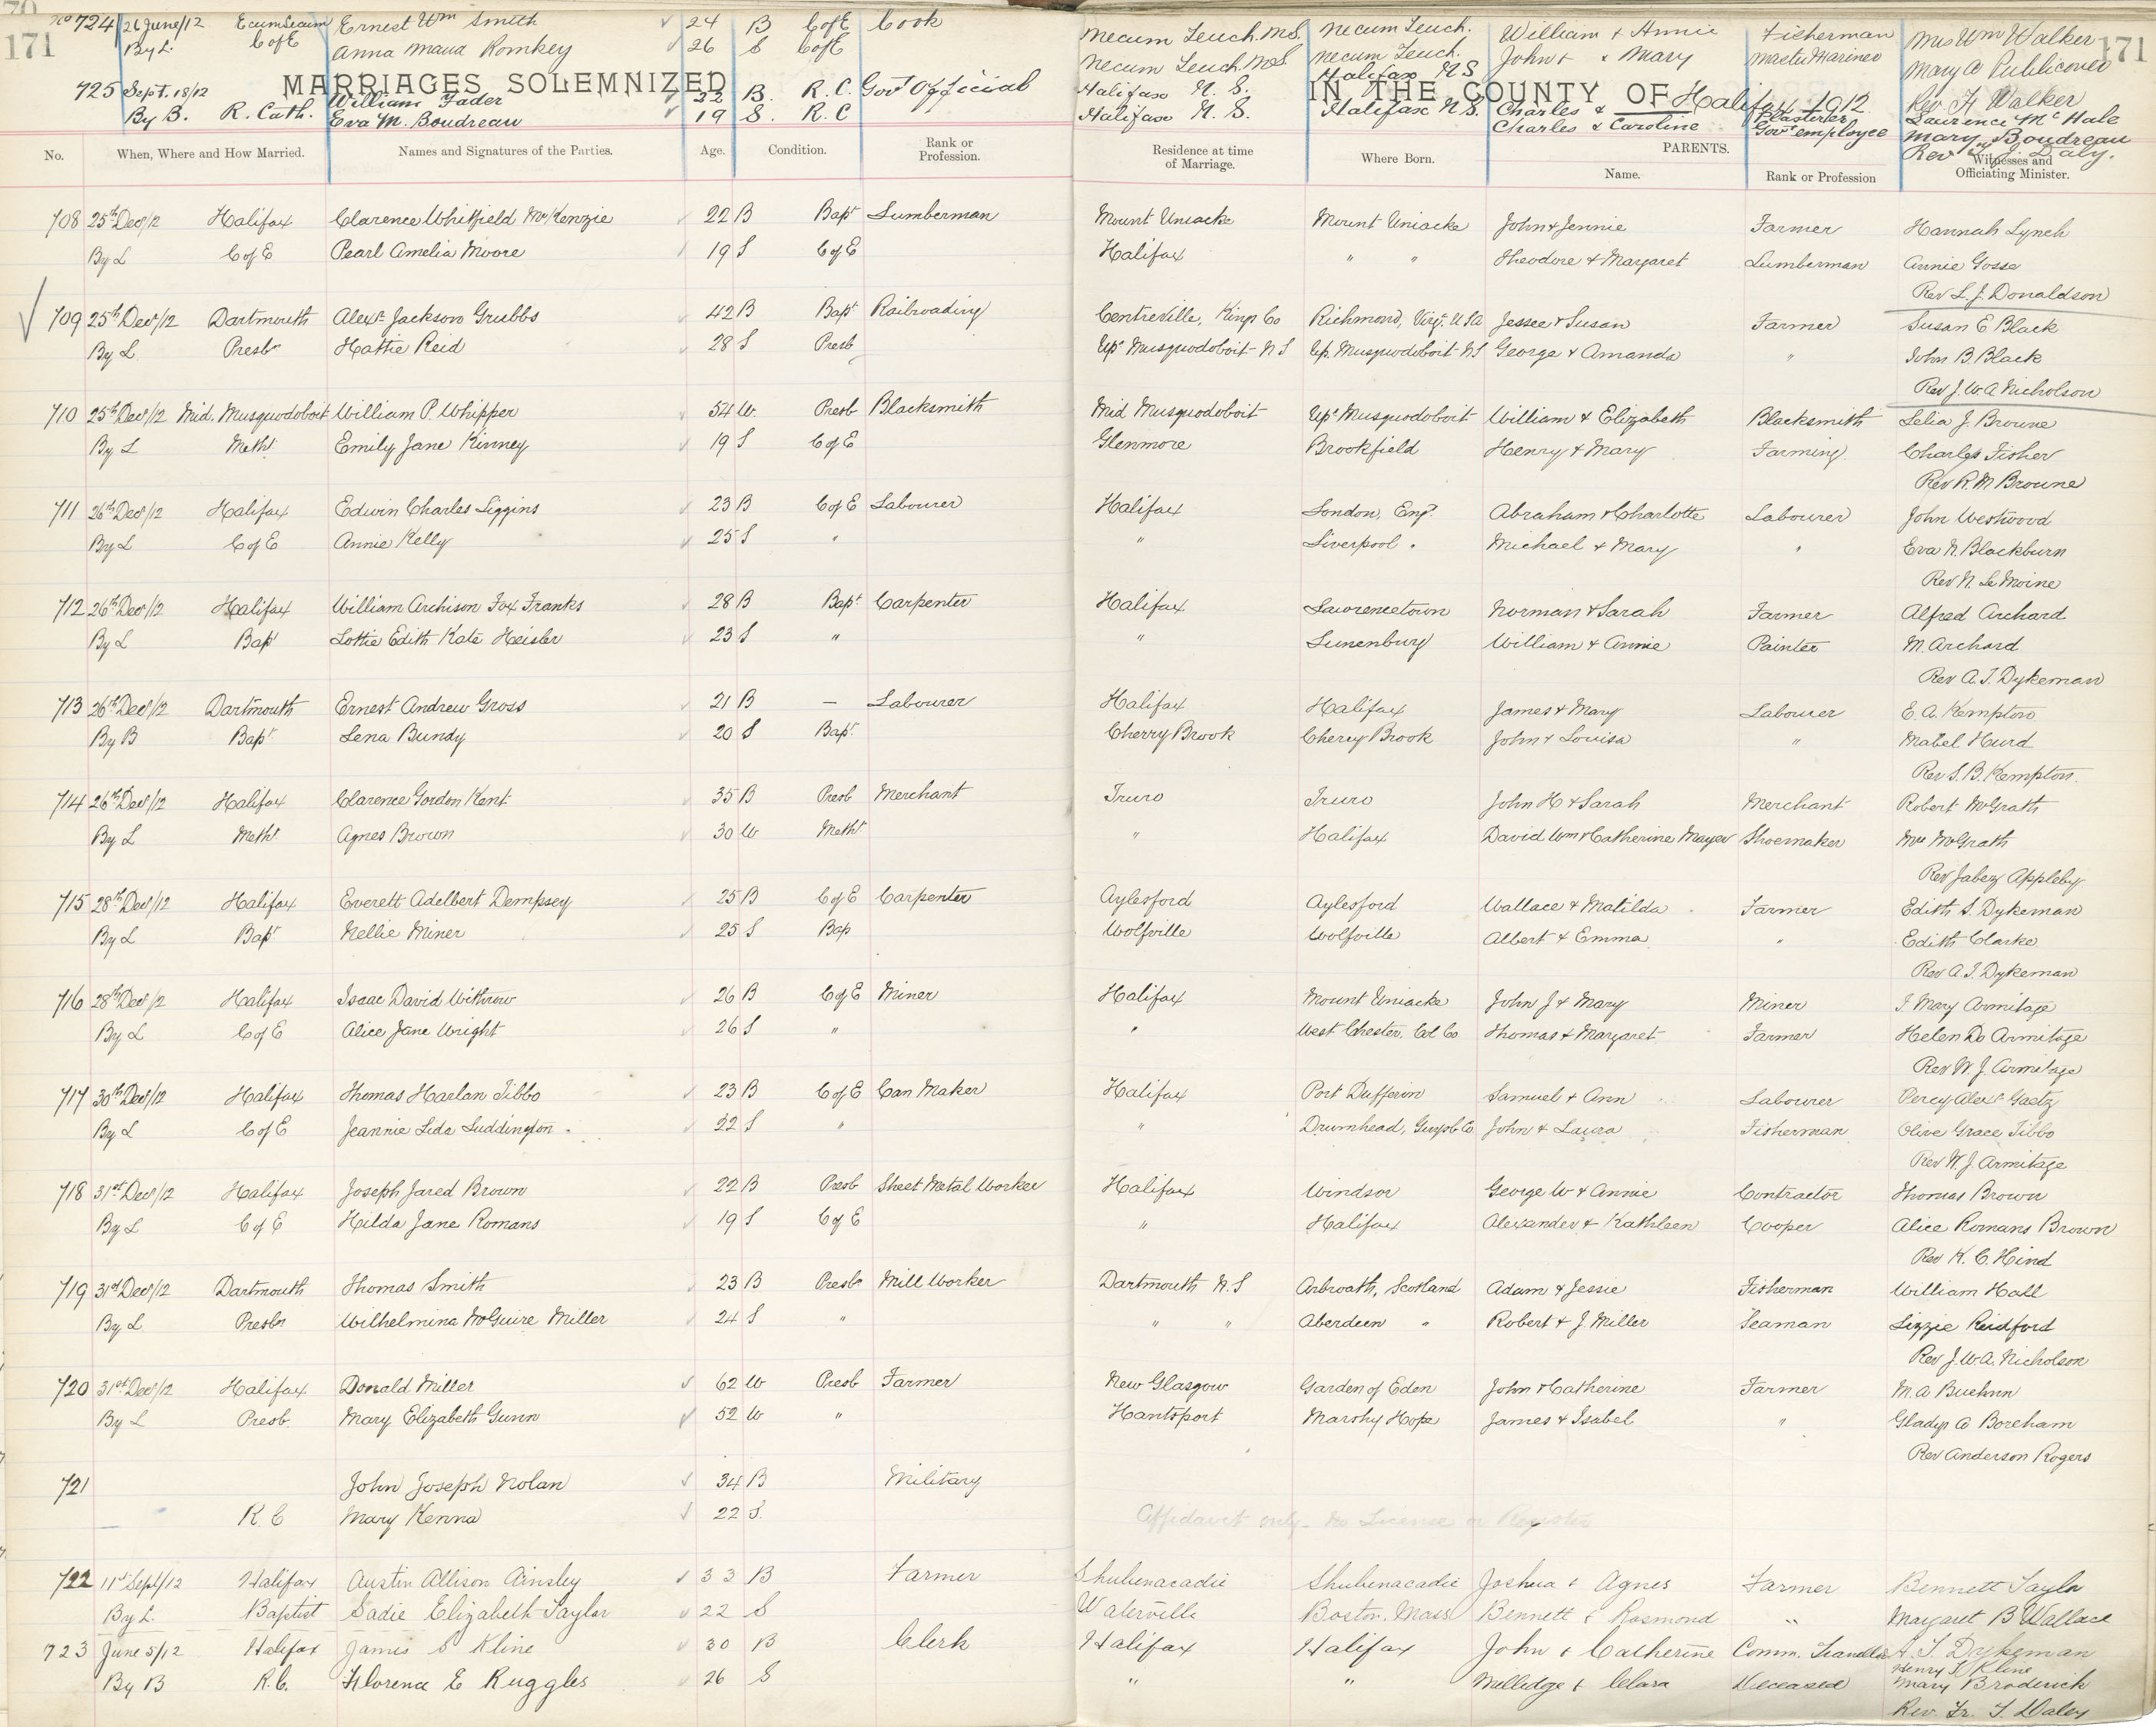 171 No 724 26 June/12 Ecum Secum Ernest Wm Smith 24 B CofE Cook Necum Teuch. N.S. Necum Teuch. William & Annie Fisherman Mrs Wm Walker 171
By L. CofE Anna Maud Romkey 26 S CofE Necum Teuch N.S Necum Teuch. John & Mary Master Mariner Mary A Publicover
Rev H Walker
MARRIAGES SOLEMNIZED IN THE COUNTY OF Halifax 1912
725 Sept. 18/12 William Fader 22 B. R.C. Gov't Official Halifax N.S. Halifax NS Charles & Plasterer Laurence McHale
By B. R. Cath. Eva M. Boudreau 19 S. R.C Halifax N.S. Halifax N.S. Charles & Caroline Gov't employee Mary Boudreau
Rev. Daly.
No. When, Where and How Married. Names and Signatures of the Parties. Age. Condition. Rank or Profession. Residence at time of Marriage. Where Born. PARENTS. Name. Rank or Profession Witnesses and Officiating Minister.
708 25th Decr/12 Halifax Clarence Whitfield McKenzie 22 B Bapt Lumberman Mount Uniacke Mount Uniacke John & Jennie Farmer Hannah Lynch
By L C of E Pearl Amelia Moore 19 S C of E Halifax " " Theodore & Margaret Lumberman Annie Gosse
Rev L. J. Donaldson
709 25th Decr/12 Dartmouth Alexr Jackson Grubbs 42 B Bapt Railroading Centreville, Kings Co Richmond, Virg. USA Jessee & Susan Farmer Susan E Black
By L Presbn Hattie Reid 28 S Presb Upr Musquodoboit N S Up. Musquodoboit NS George & Amanda " John B. Black
Rev J. W. A Nicholson
710 25th Decr/12 Mid. Musquodoboit William P. Whipper 54 W. Presb Blacksmith Mid Musquodoboit Upr Musquodoboit William & Elizabeth Blacksmith Lelia J. Browne
By L Metht Emily Jane Kinney 19 S C of E Glenmore Brookfield Henry & Mary Farming Charles Fisher
Rev R. M. Browne
711 26th Decr/12 Halifax Edwin Charles Liggins 23 B C of E Labourer Halifax London, Eng. Abraham & Charlotte Labourer John Westwood
By L C of E Annie Kelly 25 S " " Liverpool " Michael & Mary " Eva N. Blackburn
Rev N. Le Moine
712 26th Decr/12 Halifax William Archison Fox Franks 28 B Bapt Carpenter Halifax Lawrencetown Norman & Sarah Farmer Alfred Archard
By L Bapt Lottie Edith Kate Heisler 23 S " " Lunenburg William & Annie Painter M. Archard
Rev A. J. Dykeman
713 26th Decr/12 Dartmouth Ernest Andrew Gross 21 B — Labourer Halifax Halifax James & Mary Labourer E. A. Kempton
By B Bapt Lena Bundy 20 S Bapt Cherry Brook Cherry Brook John & Louisa " Mabel Hurd
Rev S. B. Kempton
714 26th Decr/12 Halifax Clarence Gordon Kent 35 B Presb Merchant Truro Truro John H & Sarah Merchant Robert McGrath
By L Metht Agnes Brown 30 W Metht " Halifax David Wm & Catherine Mayer Shoemaker Mrs McGrath
Rev Jabez Appleby
715 28th Decr/12 Halifax Everett Adelbert Dempsey 25 B C of E Carpenter Aylesford Aylesford Wallace & Matilda Farmer Edith S. Dykeman
By L Bapt Nellie Miner 25 S Bap Wolfville Wolfville Albert & Emma " Edith Clarke
Rev A. J. Dykeman
716 28th Decr/12 Halifax Isaac David Withrow 26 B C of E Miner Halifax Mount Uniacke John J & Mary Miner J. Mary Armitage
By L C of E Alice Jane Wright 26 S " " West Chester, Col Co Thomas & Margaret Farmer Helen D. Armitage
Rev W. J. Armitage
717 30th Decr/12 Halifax Thomas Harlan Tibbo 23 B C of E Can Maker Halifax Port Dufferin Samuel & Ann Labourer Percy Alexr Gaetz
By L C of E Jeannie Lida Luddington 22 S " " Drumhead, Guysb Co John & Laura Fisherman Olive Grace Tibbo
Rev W. J. Armitage
718 31st Decr/12 Halifax Joseph Jared Brown 22 B Presb Sheet Metal Worker Halifax Windsor George W & Annie Contractor Thomas Brown
By L C of E Hilda Jane Romans 19 S C of E " Halifax Alexander & Kathleen Cooper Alice Romans Brown
Rev K. C. Hind
719 31st Decr/12 Dartmouth Thomas Smith 23 B Presbn Mill Worker Dartmouth N.S Arbroath, Scotland Adam & Jessie Fisherman William Hall
By L Presbn Wilhelmina McGuire Miller 24 S " " " Aberdeen " Robert & J. Miller Seaman Lizzie Reidford
Rev J. W. A. Nicholson
720 31st Decr/12 Halifax Donald Miller 62 W Presb Farmer New Glasgow Garden of Eden John & Catherine Farmer M. A
By L Presb. Mary Elizabeth Gunn 52 W " Hantsport Marshy Hope James & Isabel " Gladys A Boreham
Rev Anderson Rogers
721 John Joseph Nolan 34 B Military
R. C Mary Kenna 22 S. Affidavit only - no License or Register
722 11th Sept/12 Halifax Austin Allison Ainsley 33 B Farmer Shubenacadie Shubenacadie Joshua & Agnes Farmer Bennett Taylor
By L. Baptist Sadie Elizabeth Taylor 22 S Waterville Boston. Mass Bennett & Rosmond " Margaret B Wallace
A. J. Dykeman
723 June 5/12 Halifax James S Kline 30 B Clerk Halifax Halifax John & Catherine Comm. Traveller Henry Kline
By B R.C. Florence E Ruggles 26 S " " Millidge & Clara Deceased Mary Broderick
Rev. Fr. T. Daley